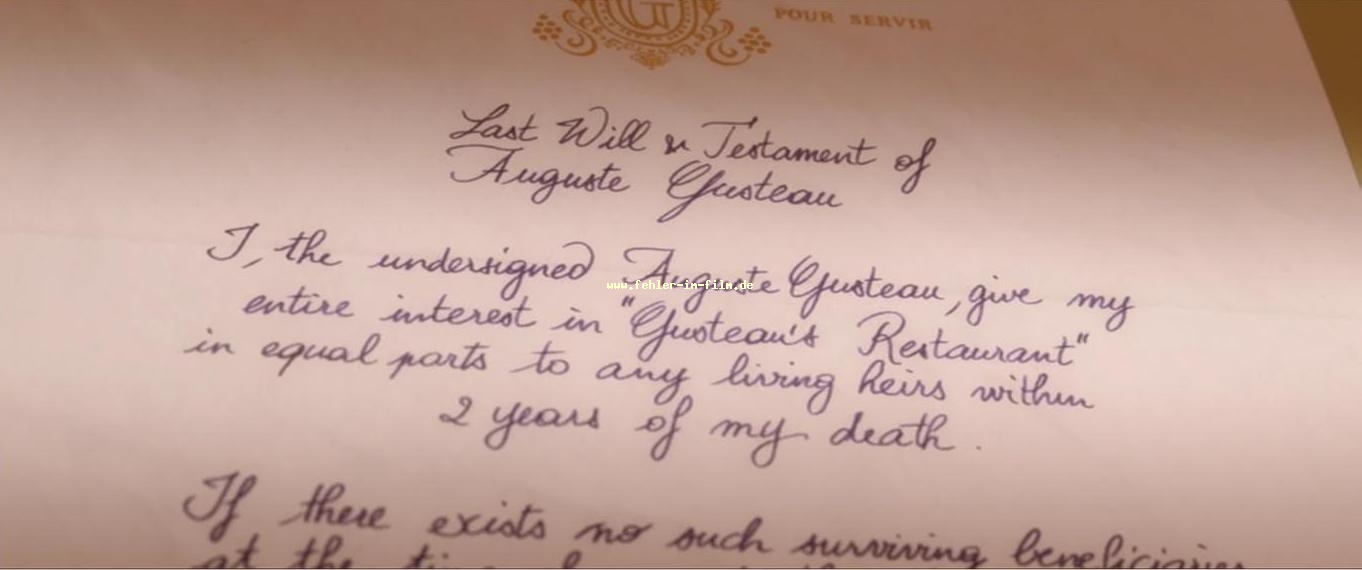 POUR SERVIR
Last Will & Testament of
Auguste Gusteau
I, the undersigned Auguste Gusteau, give my
www.fehler-im-film.de
entire interest in "Gusteau's Restaurant"
in equal parts to any living heirs within
2 years of my death.
If there exists no such surviving beneficiaries
at the